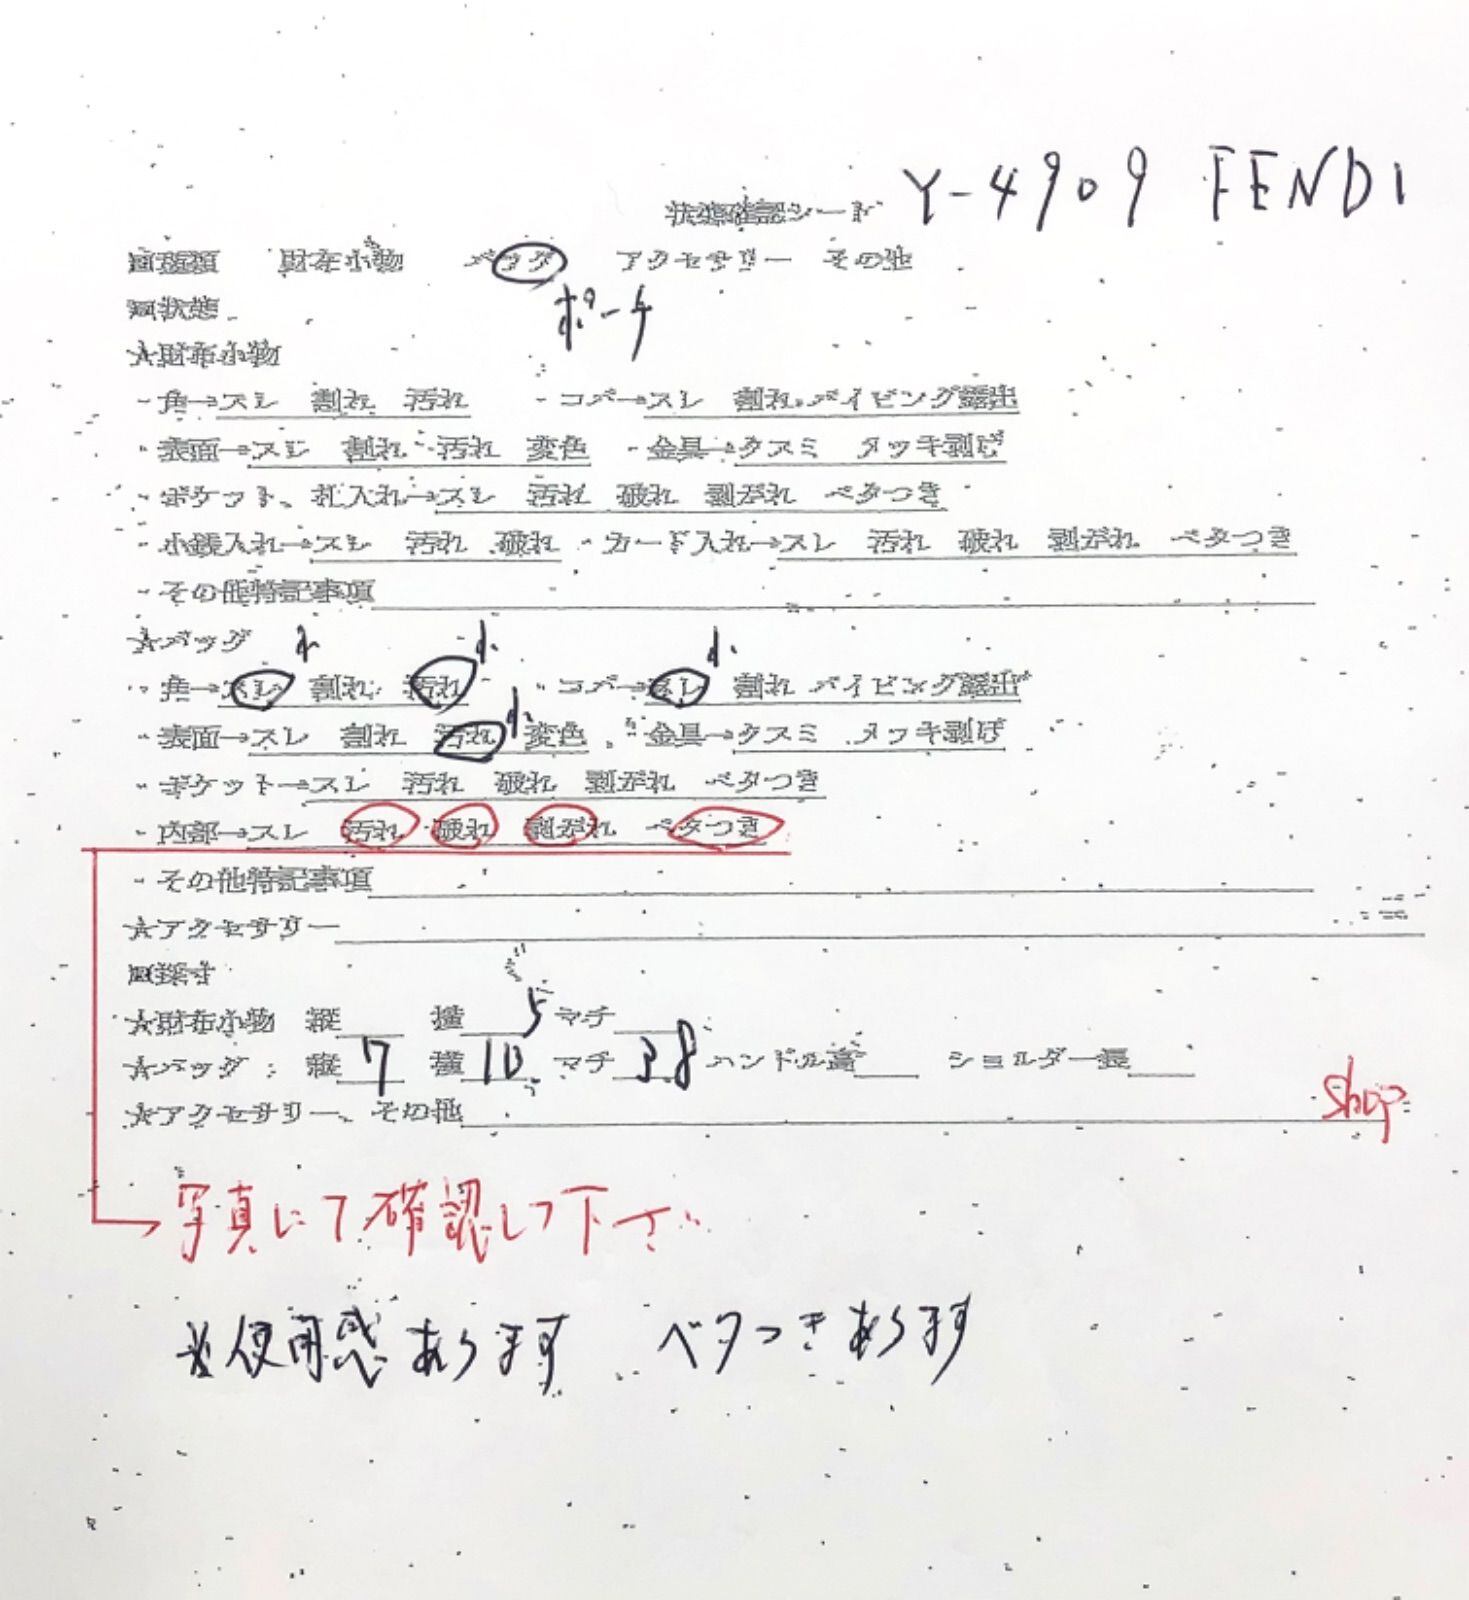 状態確認シート Y-4909 FENDI
□種類 財布小物 バッグ アクセサリー その他
ポーチ
□状態
☆財布小物
・角→スレ 割れ 汚れ ・コバ→スレ 割れ パイピング露出
・表面→スレ 割れ 汚れ 変色 ・金具→クスミ メッキ剥げ
・ポケット、札入れ→スレ 汚れ 破れ 剥がれ ベタつき
・小銭入れ→スレ 汚れ 破れ ・カード入れ→スレ 汚れ 破れ 剥がれ ベタつき
・その他特記事項
☆バッグ
小 小 小
・角→スレ 割れ 汚れ ・コバ→スレ 割れ パイピング露出
小
・表面→スレ 割れ 汚れ 変色 ・金具→クスミ メッキ剥げ
・ポケット→スレ 汚れ 破れ 剥がれ ベタつき
・内部→スレ 汚れ 破れ 剥がれ ベタつき
・その他特記事項
☆アクセサリー
□採寸
☆財布小物 縦 横 マチ
☆バッグ 縦 7 横 マチ ハンドル高 ショルダー長
☆アクセサリー、その他
shop
写真にて確認して下さい
※使用感あります ベタつきあります